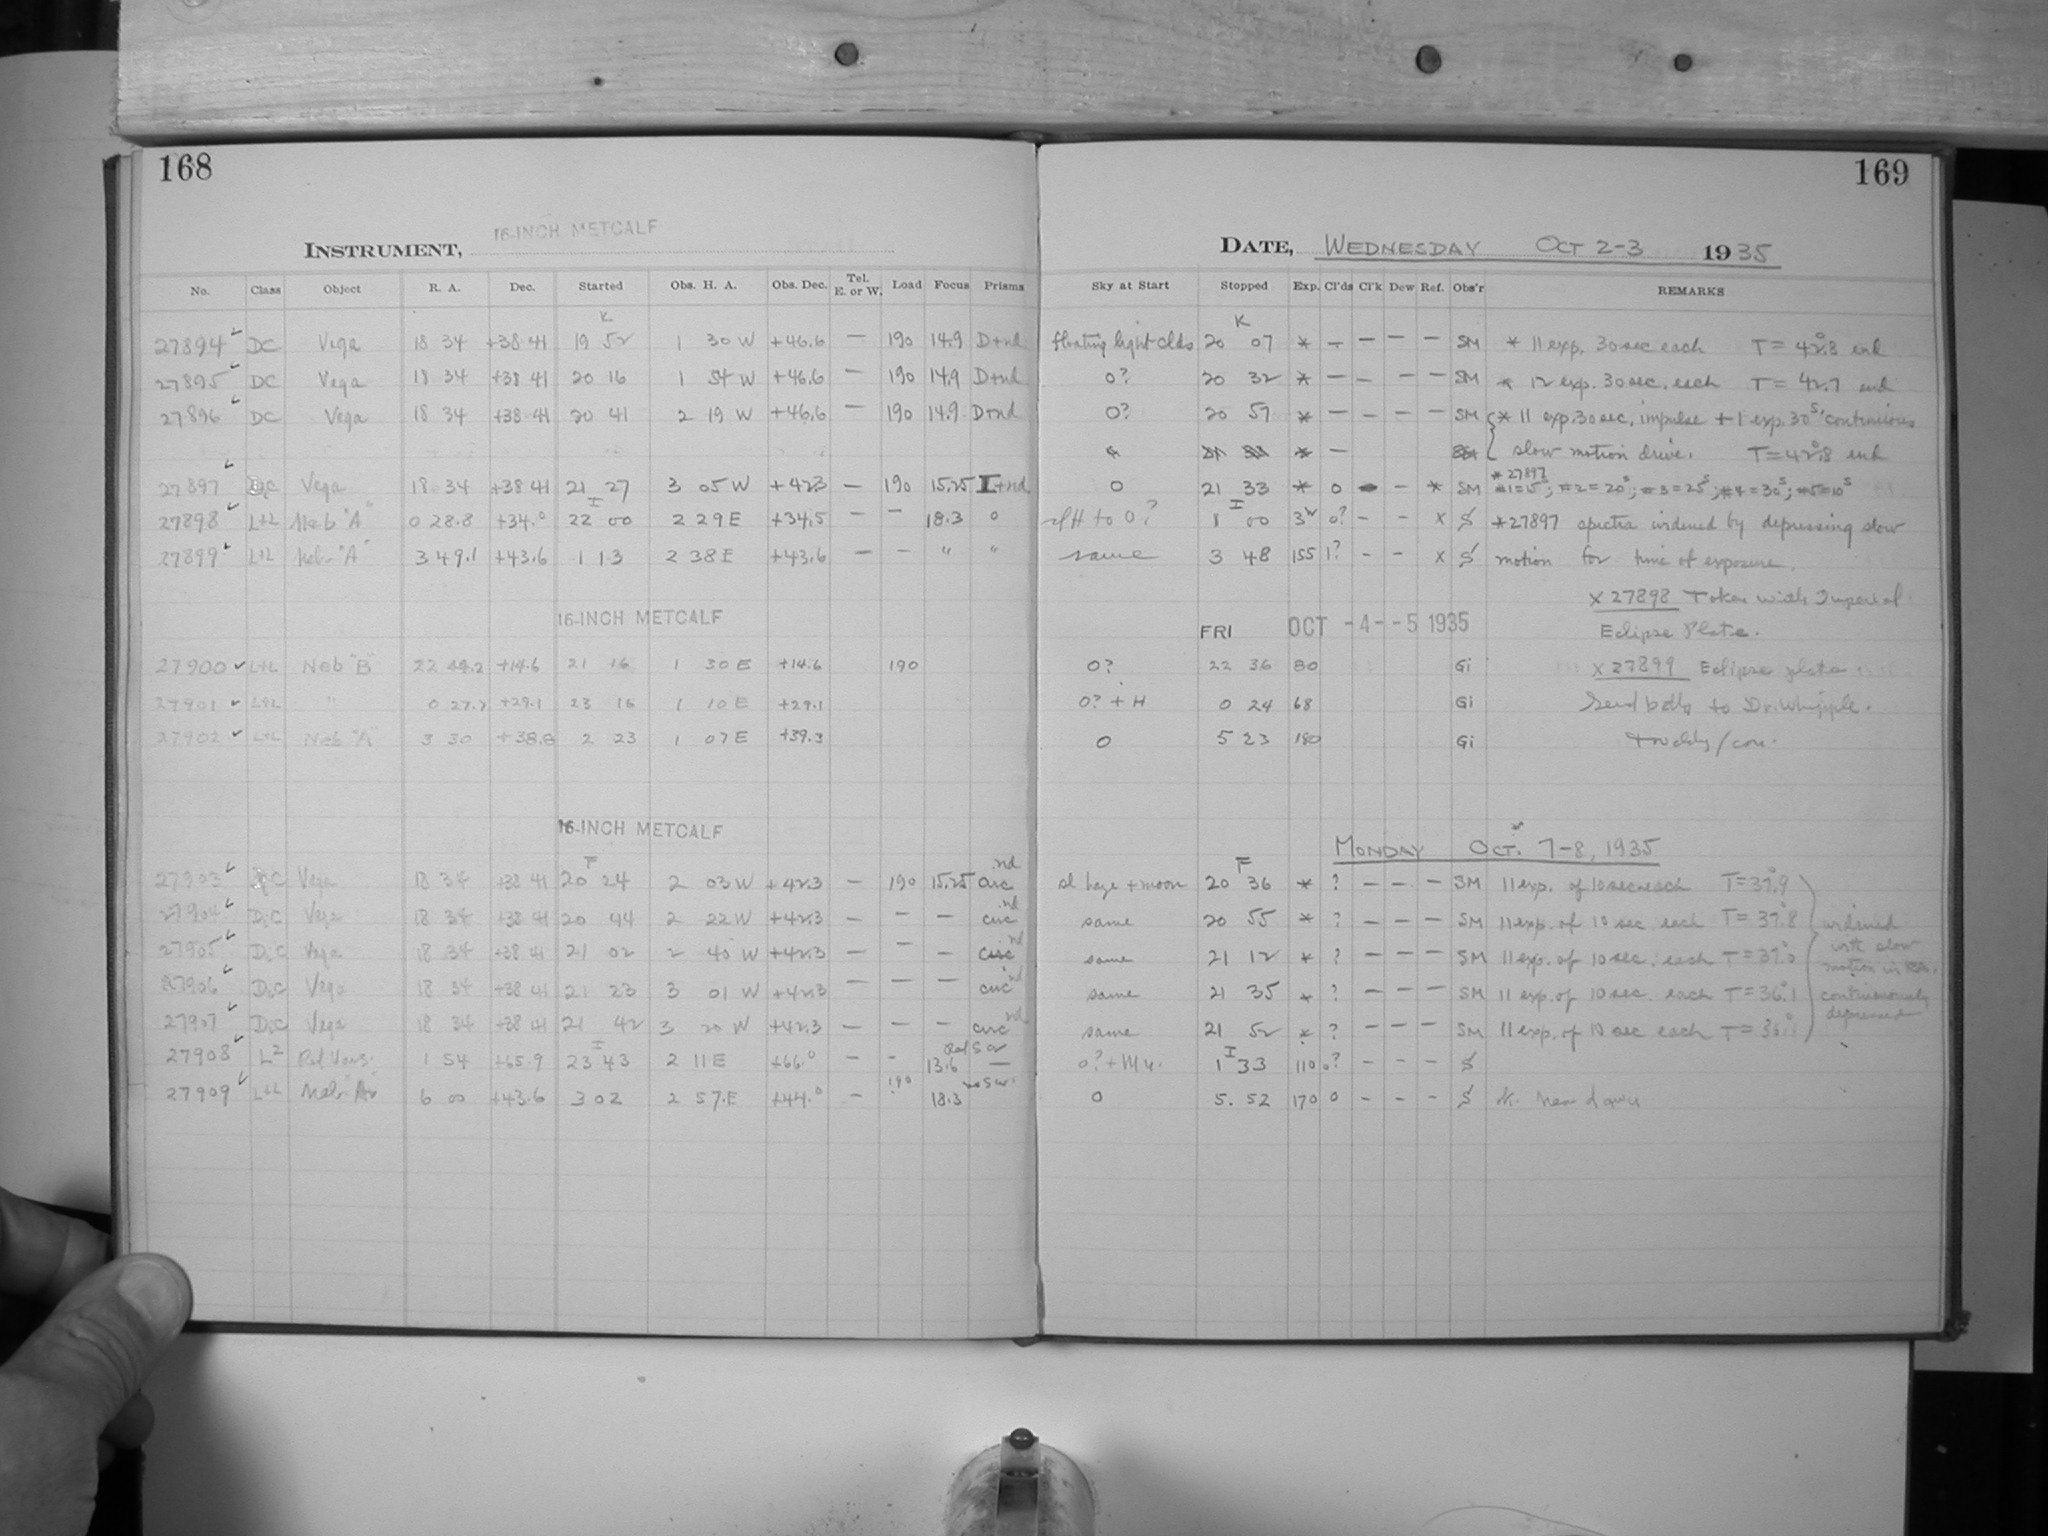 168
169
16-INCH METCALF
INSTRUMENT,
DATE, WEDNESDAY OCT 2-3 1935
No. Class Object R. A. Dec. Started Obs. H. A. Obs. Dec. Tel. E. or W. Load Focus Prisms Sky at Start Stopped Exp. Cl'ds Cl'k Dew Ref. Obs'r REMARKS
K K
27894 DC Vega 18 34 +38 41 19 52 1 30 W +46.6 — 190 14.9 D+nd floating light clds 20 07 * — — — — SM * 11 exp. 30 sec each T = 42.°3 end
27895 DC Vega 18 34 +38 41 20 16 1 54 W +46.6 — 190 14.9 D+nd 0? 20 32 * — — — — SM * 12 exp. 30 sec. each T = 42.7 end
27896 DC Vega 18 34 +38 41 20 41 2 19 W +46.6 — 190 14.9 D+nd 0? 20 57 * — — — — SM * 11 exp. 30 sec. impulse + 1 exp. 30s. continuous
slow motion drive. T = 42.°8 end
* 27897
27897 DC Vega 18 34 +38 41 21 27 3 05 W +42.3 — 190 15.25 I+nd 0 21 33 * 0 — * SM #1=15s; #2=20s; #3=25s; #4=30s; #5=10s
I I
27898 L+L Neb "A" 0 28.8 +34.0 22 00 2 29 E +34.5 — — 18.3 0 slH to 0? 1 00 3h 0? - - x S *27897 spectra widened by depressing slow
27899 L+L Neb. "A" 3 49.1 +43.6 1 13 2 38 E +43.6 — — " " same 3 48 155 1? - - x S motion for time of exposure.
x 27898 Taken with Imperial
16-INCH METCALF FRI OCT -4--5 1935 Eclipse Plate.
27900 L+L Neb "B" 22 44.2 +14.6 21 16 1 30 E +14.6 190 0? 22 36 80 Gi x 27899 Eclipse plate
27901 L+L " 0 27.7 +29.1 23 16 1 10 E +29.1 0? + H 0 24 68 Gi Send both to Dr. Whipple.
27902 L+L Neb "A" 3 30 +38.8 2 23 1 07 E +39.3 0 5 23 180 Gi
16-INCH METCALF
MONDAY OCT. 7-8, 1935
F F
27903 DC Vega 18 34 +38 41 20 24 2 03 W +42.3 — 190 15.25 circ nd sl haze + moon 20 36 * ? — — — SM 11 exp. of 10 sec each T = 39.°9
27904 D.C Vega 18 34 +38 41 20 44 2 22 W +42.3 — — — circ nd same 20 55 * ? — — — SM 11 exp. of 10 sec. each T = 37.°8 widened
27905 D.C Vega 18 34 +38 41 21 02 2 40 W +42.3 — — — circ nd same 21 12 * ? — — — SM 11 exp. of 10 sec. each T = 37.°0 with slow
27906 D.C Vega 18 34 +38 41 21 23 3 01 W +42.3 — — — circ nd same 21 35 * ? — — — SM 11 exp. of 10 sec each T = 36.°1 motion in RA. continuously
27907 D.C Vega 18 34 +38 41 21 42 3 20 W +42.3 — — — circ nd same 21 52 * ? — — — SM 11 exp. of 10 sec each T = 36. depressed
I I
27908 L2 1 54 +65.9 23 43 2 11 E +66.0 — - 13.6 — 1 33 110 0? - - - S
27909 L+L Neb. 6 00 +43.6 3 02 2 57.E +44.0 — 190 18.3 0 5. 52 170 0 - - - S near dawn